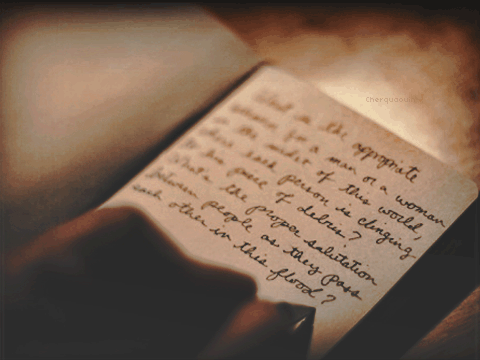 What is the appropriate
behavior for a man or a woman
in the midst of this world,
where each person is clinging
to his piece of debris?
What's the proper salutation
between people as they pass
each other in this flood?